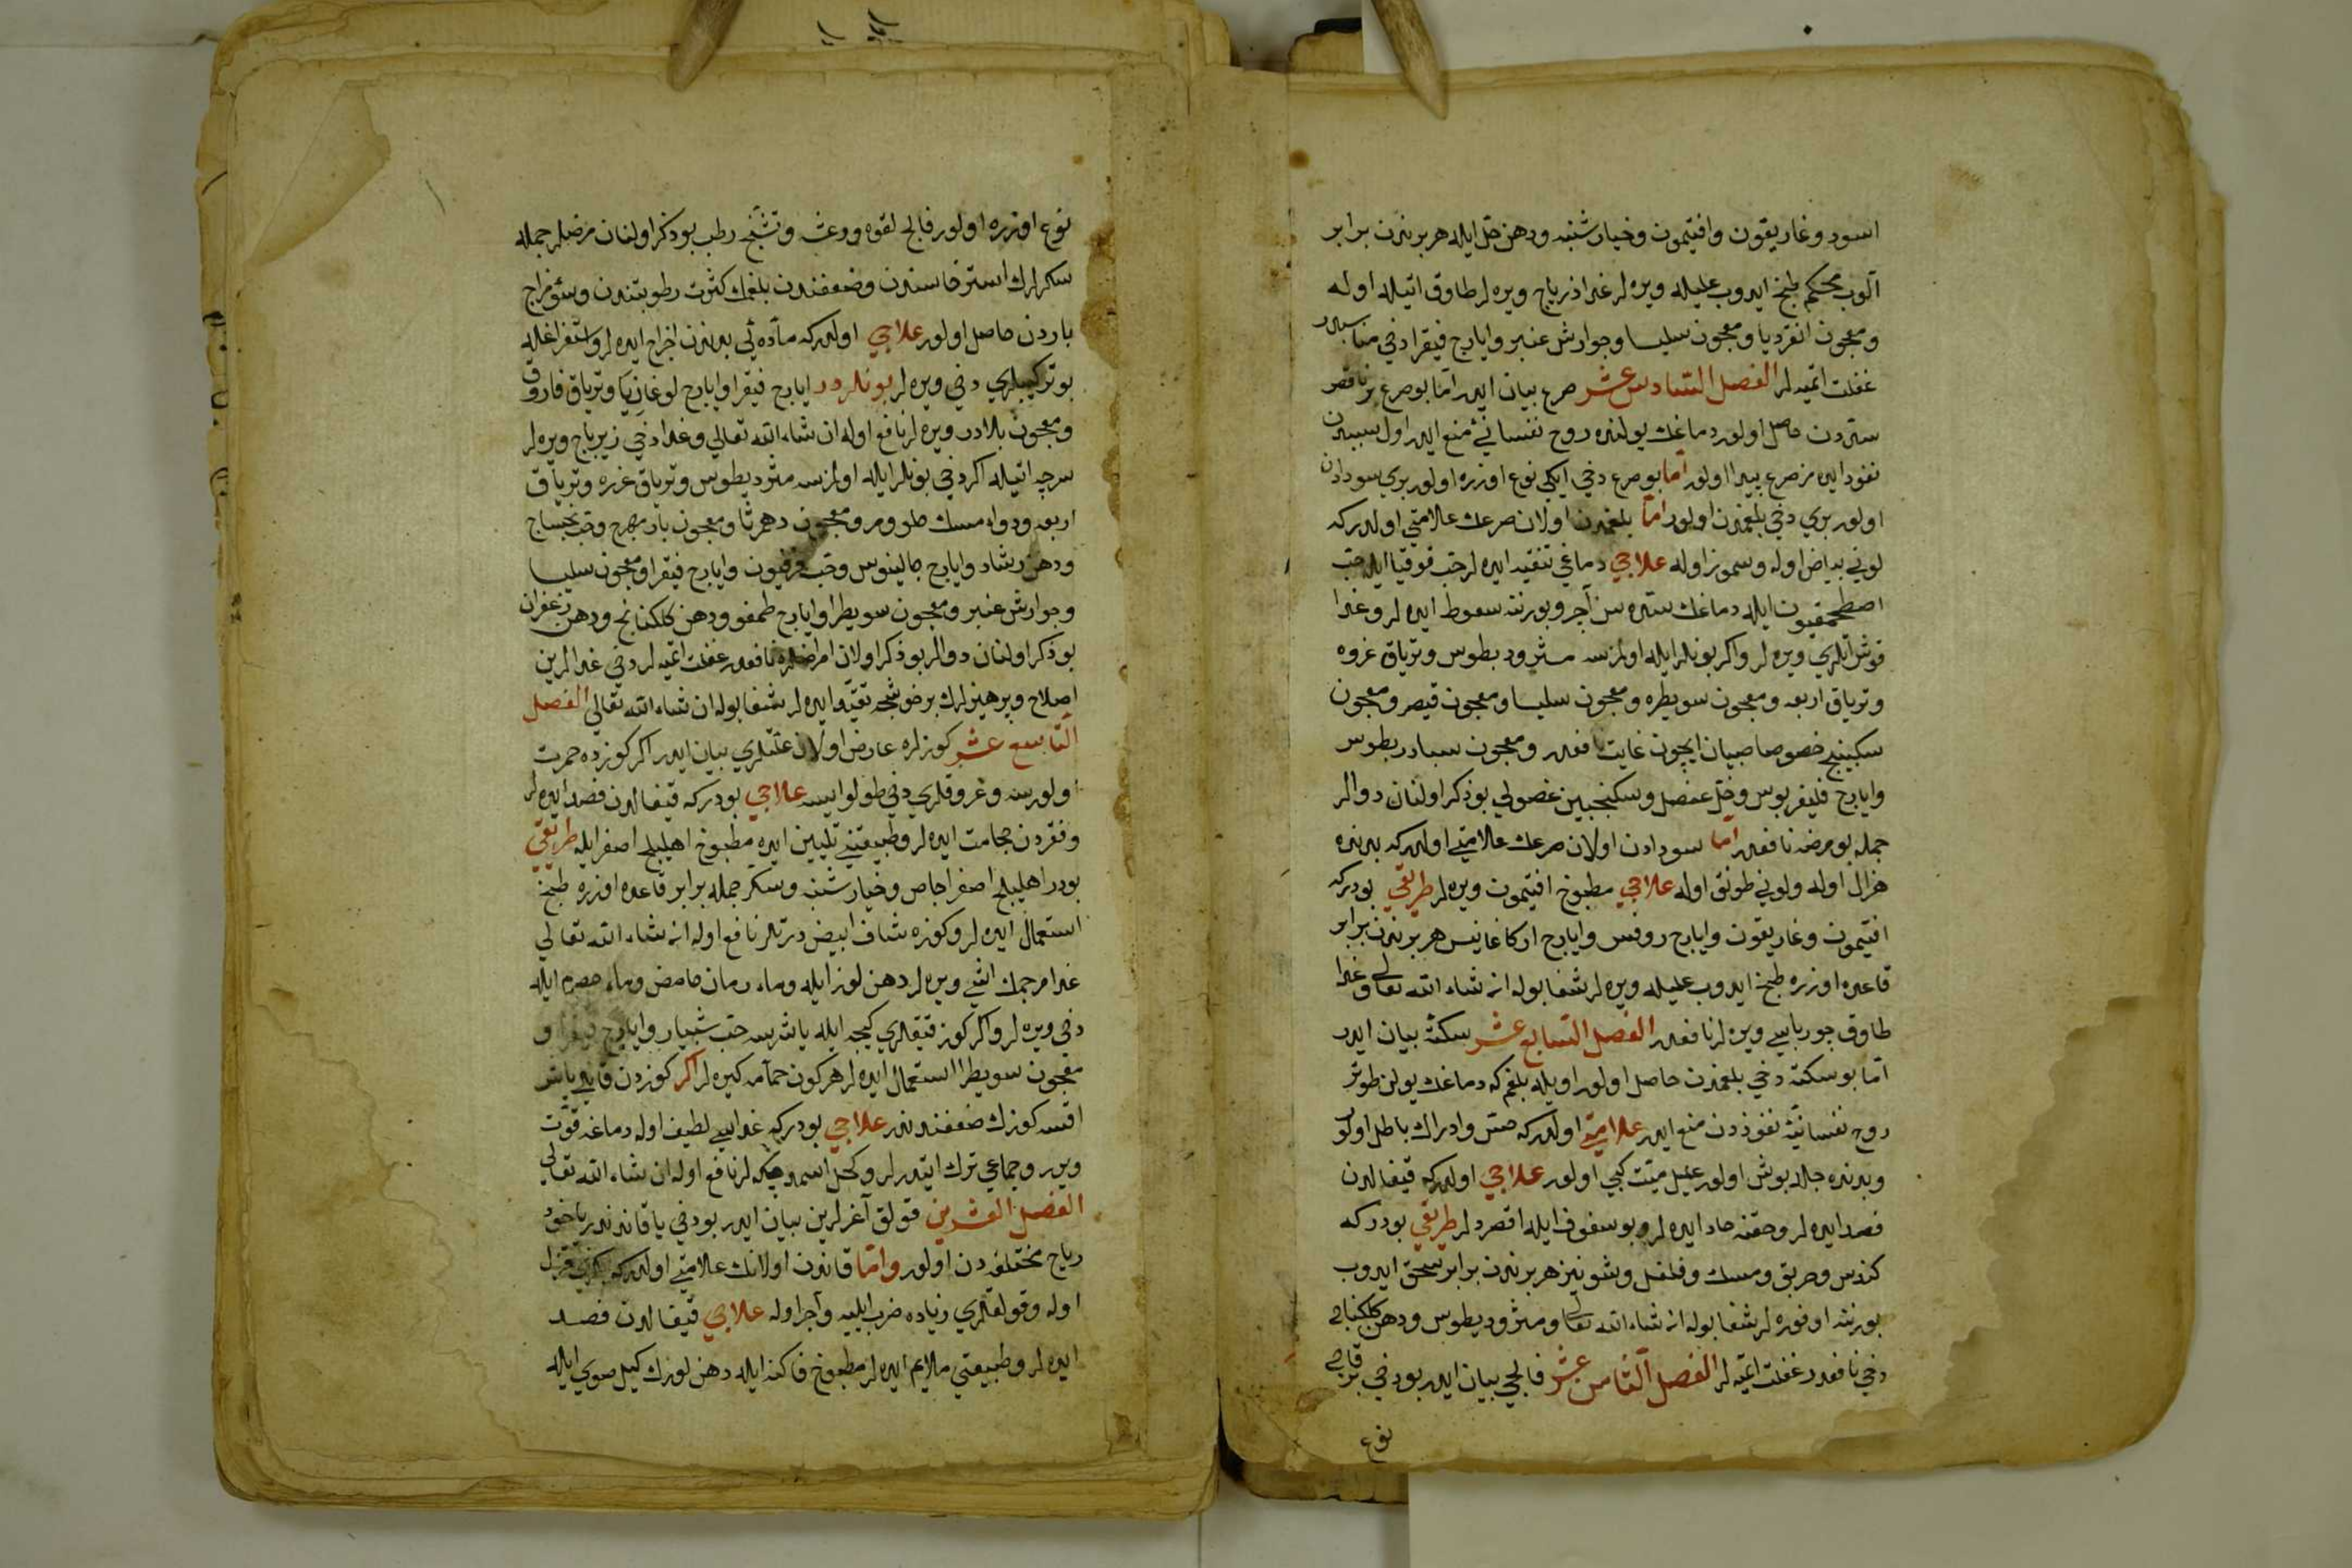 اسود و غاريقون و افتيمون و خيارشنبه و دهن خل ايله هر برندن برابر
آلوب محكم طبخ ايدوب عليله ويره لر غدا زيرباج ويره لر طاوق اتيله اوله
و معجون انقرديا و معجون سليسا و جوارش عنبر و ايارج فيقرا دخي مناسبدر
غفلت اتميه لر الفصل السادس عشر صرع بيان ايدر اما بو صرع
سددن حاصل اولور دماغك يولنده روح نفساني منع ايدر اول سببدن
نفوذ ايده مز صرع پيدا اولور اما بو صرع دخي ايكي نوع اوزره اولور بري سودادن
اولور بري دخي بلغمدن اولور اما بلغمدن اولان صرعك علامتي اولدركه
لوني بياض اوله و سموز اوله علاجي دماغي تنقيه ايده لر حب قوقيا ايله حب
اصطمحيقون ايله دماغك سده سن آچر و بورننه سعوط ايده لر و غدا
قوش اتلري ويره لر و اكر بونلر ايله اولمزسه مثرود يطوس و ترياق غزره
و ترياق اربعه و معجون سويطره و معجون سليسا و معجون قيصر و معجون
سكبينج خصوصا صبيان ايچون غايت نافعدر و معجون سادريطوس
و ايارج فليغريوس و خل عنصل و سكنجبين عنصولي بو ذكر اولنان دوالر
جمله بو مرضه نافعدر اما سودادن اولان صرعك علامتي اولدركه بدنده
هزال اوله و لوني طونق اوله علاجي مطبوخ افتيمون ويره لر طريقي بودركه
افتيمون و غاريقون و ايارج روفس و ايارج اركاغانيس هر برندن برابر
قاعده اوزره طبخ ايدوب عليله ويره لر شفا بوله ان شاء الله تعالى و غدا
طاوق چورباسي ويره لر نافعدر الفصل السابع عشر سكته بيان ايدر
اما بو سكته دخي بلغمدن حاصل اولور اويله بلغم كه دماغك يولن طوتر
روح نفسانيه نفوذدن منع ايدر علامتي اولدركه حس و ادراك باطل اولور
و بدنده جان بوش اولور عليل ميت كبي اولور علاجي اولدركه قيفالدن
فصد ايده لر و حقنه حاد ايده لر و بو سفوف ايله اقصردلر طريقي بودركه
كندس و خربق و مسك و فلفل و شونيز هر برندن برابر سحق ايدوب
بورننه اوفوره لر شفا بوله ان شاء الله تعالى و مثروديطوس و دهن كلكنانج
دخي نافعدر غفلت اتميه لر الفصل الثامن عشر فالجي بيان ايدر بو دخي برقاچ
نوع
نوع اوزره اولور فالج لقوه و رعشه و تشنج رطب بو ذكر اولنان مرضلر جمله
سكرلرك استرخاسندن و ضعفندن بلغمك كثرت رطوبتندن و سؤ مزاج
باردن حاصل اولور علاجي اولدركه ماده ئي بدندن اخراج ايده لر و استفراغله
بو تركيبلري دخي ويره لر بونلردر ايارج فيقرا و ايارج لوغاذيا و ترياق فاروق
و معجون بلادر ويره لر نافع اوله ان شاء الله تعالي و غدا دخي زيرباج ويره لر
سرچه اتيله اكر دخي بونلر ايله اولمزسه مثروديطوس و ترياق غزره و ترياق
اربعه و دواء مسك حلو و مر و معجون دهرثا و معجون بادمهرج و حب بخساج
و دهن رشاد و ايارج جالينوس و حب فرفيون و ايارج فيقرا و معجون سليسا
و جوارش عنبر و معجون سويطرا و ايارج طمغو و دهن كلكنانج و دهن زعفران
بو ذكر اولنان دوالر بو ذكر اولان امراضلره نافعدر غفلت اتميه لر دخي غدالرين
اصلاح و پرهيزلرك برخوشجه تقيد ايده لر شفا بوله ان شاء الله تعالي الفصل
التاسع عشر كوزلره عارض اولان علتلري بيان ايدر اكر كوزده حمرت
اولورسه و عروقلري دخي طولو ايسه علاجي بودركه قيفالدن فصد ايده لر
و فقردن حجامت ايده لر و طبيعتني تليين ايده مطبوخ اهليلج اصفر ايله طريقي
بودر اهليلج اصفر اجاص و خيارشنبه و سكر جمله برابر قاعده اوزره طبخ
استعمال ايده لر و كوزه شاف ابيض درتلر نافع اوله ان شاء الله تعالي
غدا مرجمك اشي ويره لر دهن لوز ايله و ماء رمان حامض و ماء حصرم ايله
دخي ويره لر و اكر كوز قپقلري كيجه ايله ياپشرسه حب شبيار و ايارج فيقرا و
معجون سويطرا استعمال ايده لر هر كون حمامه كيره لر اكر كوزدن قانلي ياش
اقسه كوزك ضعفندندر علاجي بودركه غداسي لطيف اوله دماغه قوت
ويرر و جماعي ترك ايتدرلر و كحل اسمد چكه لر نافع اوله ان شاء الله تعالي
الفصل العشرين قولق آغرلرين بيان ايدر بو دخي يا قاندندر ياخود
رياح مختلفه دن اولور و اما قاندن اولانك علامتي اولدركه قزل
اوله و قولقلري زياده ضرب ايليه و آجر اوله علاجي قيفالدن فصد
ايده لر و طبيعتي ملايم ايده لر مطبوخ فاكهه ايله دهن لوزك كيل صويي ايله